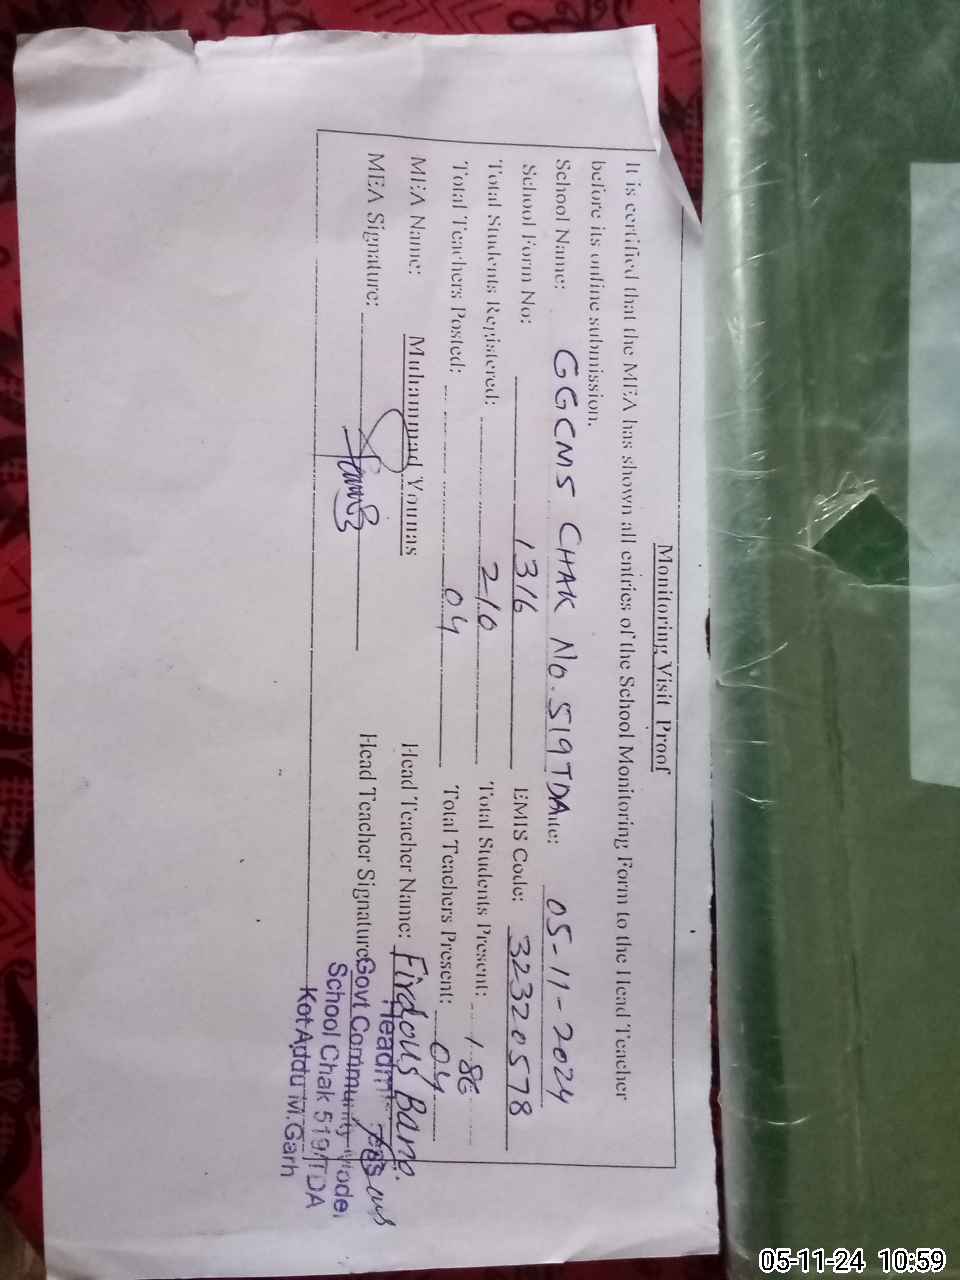 Monitoring Visit Proof
It is certified that the MEA has shown all entries of the School Monitoring Form to the Head Teacher
before its online submission.
School Name: GGCMS CHAK No. 519 TDA Date: 05-11-2024
School Form No: 1316 EMIS Code: 32320578
Total Students Registered: 210 Total Students Present: 186
Total Teachers Posted: 04 Total Teachers Present: 04
MEA Name: Muhammad Younas Head Teacher Name: Firdous Bano.
MEA Signature: Head Teacher Signature:
Govt Community Model
School Chak 519/TDA
Kot Addu M.Garh
05-11-24 10:59